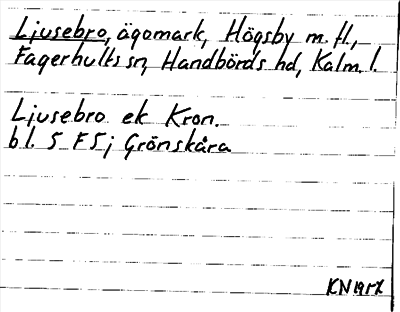 Ljusebro, ägomark, Högsby m. fl.,
Fagerhults sn, Handbörds hd, Kalm. l.
Ljusebro ek Kron.
bl. 5 F5j Grönskåra